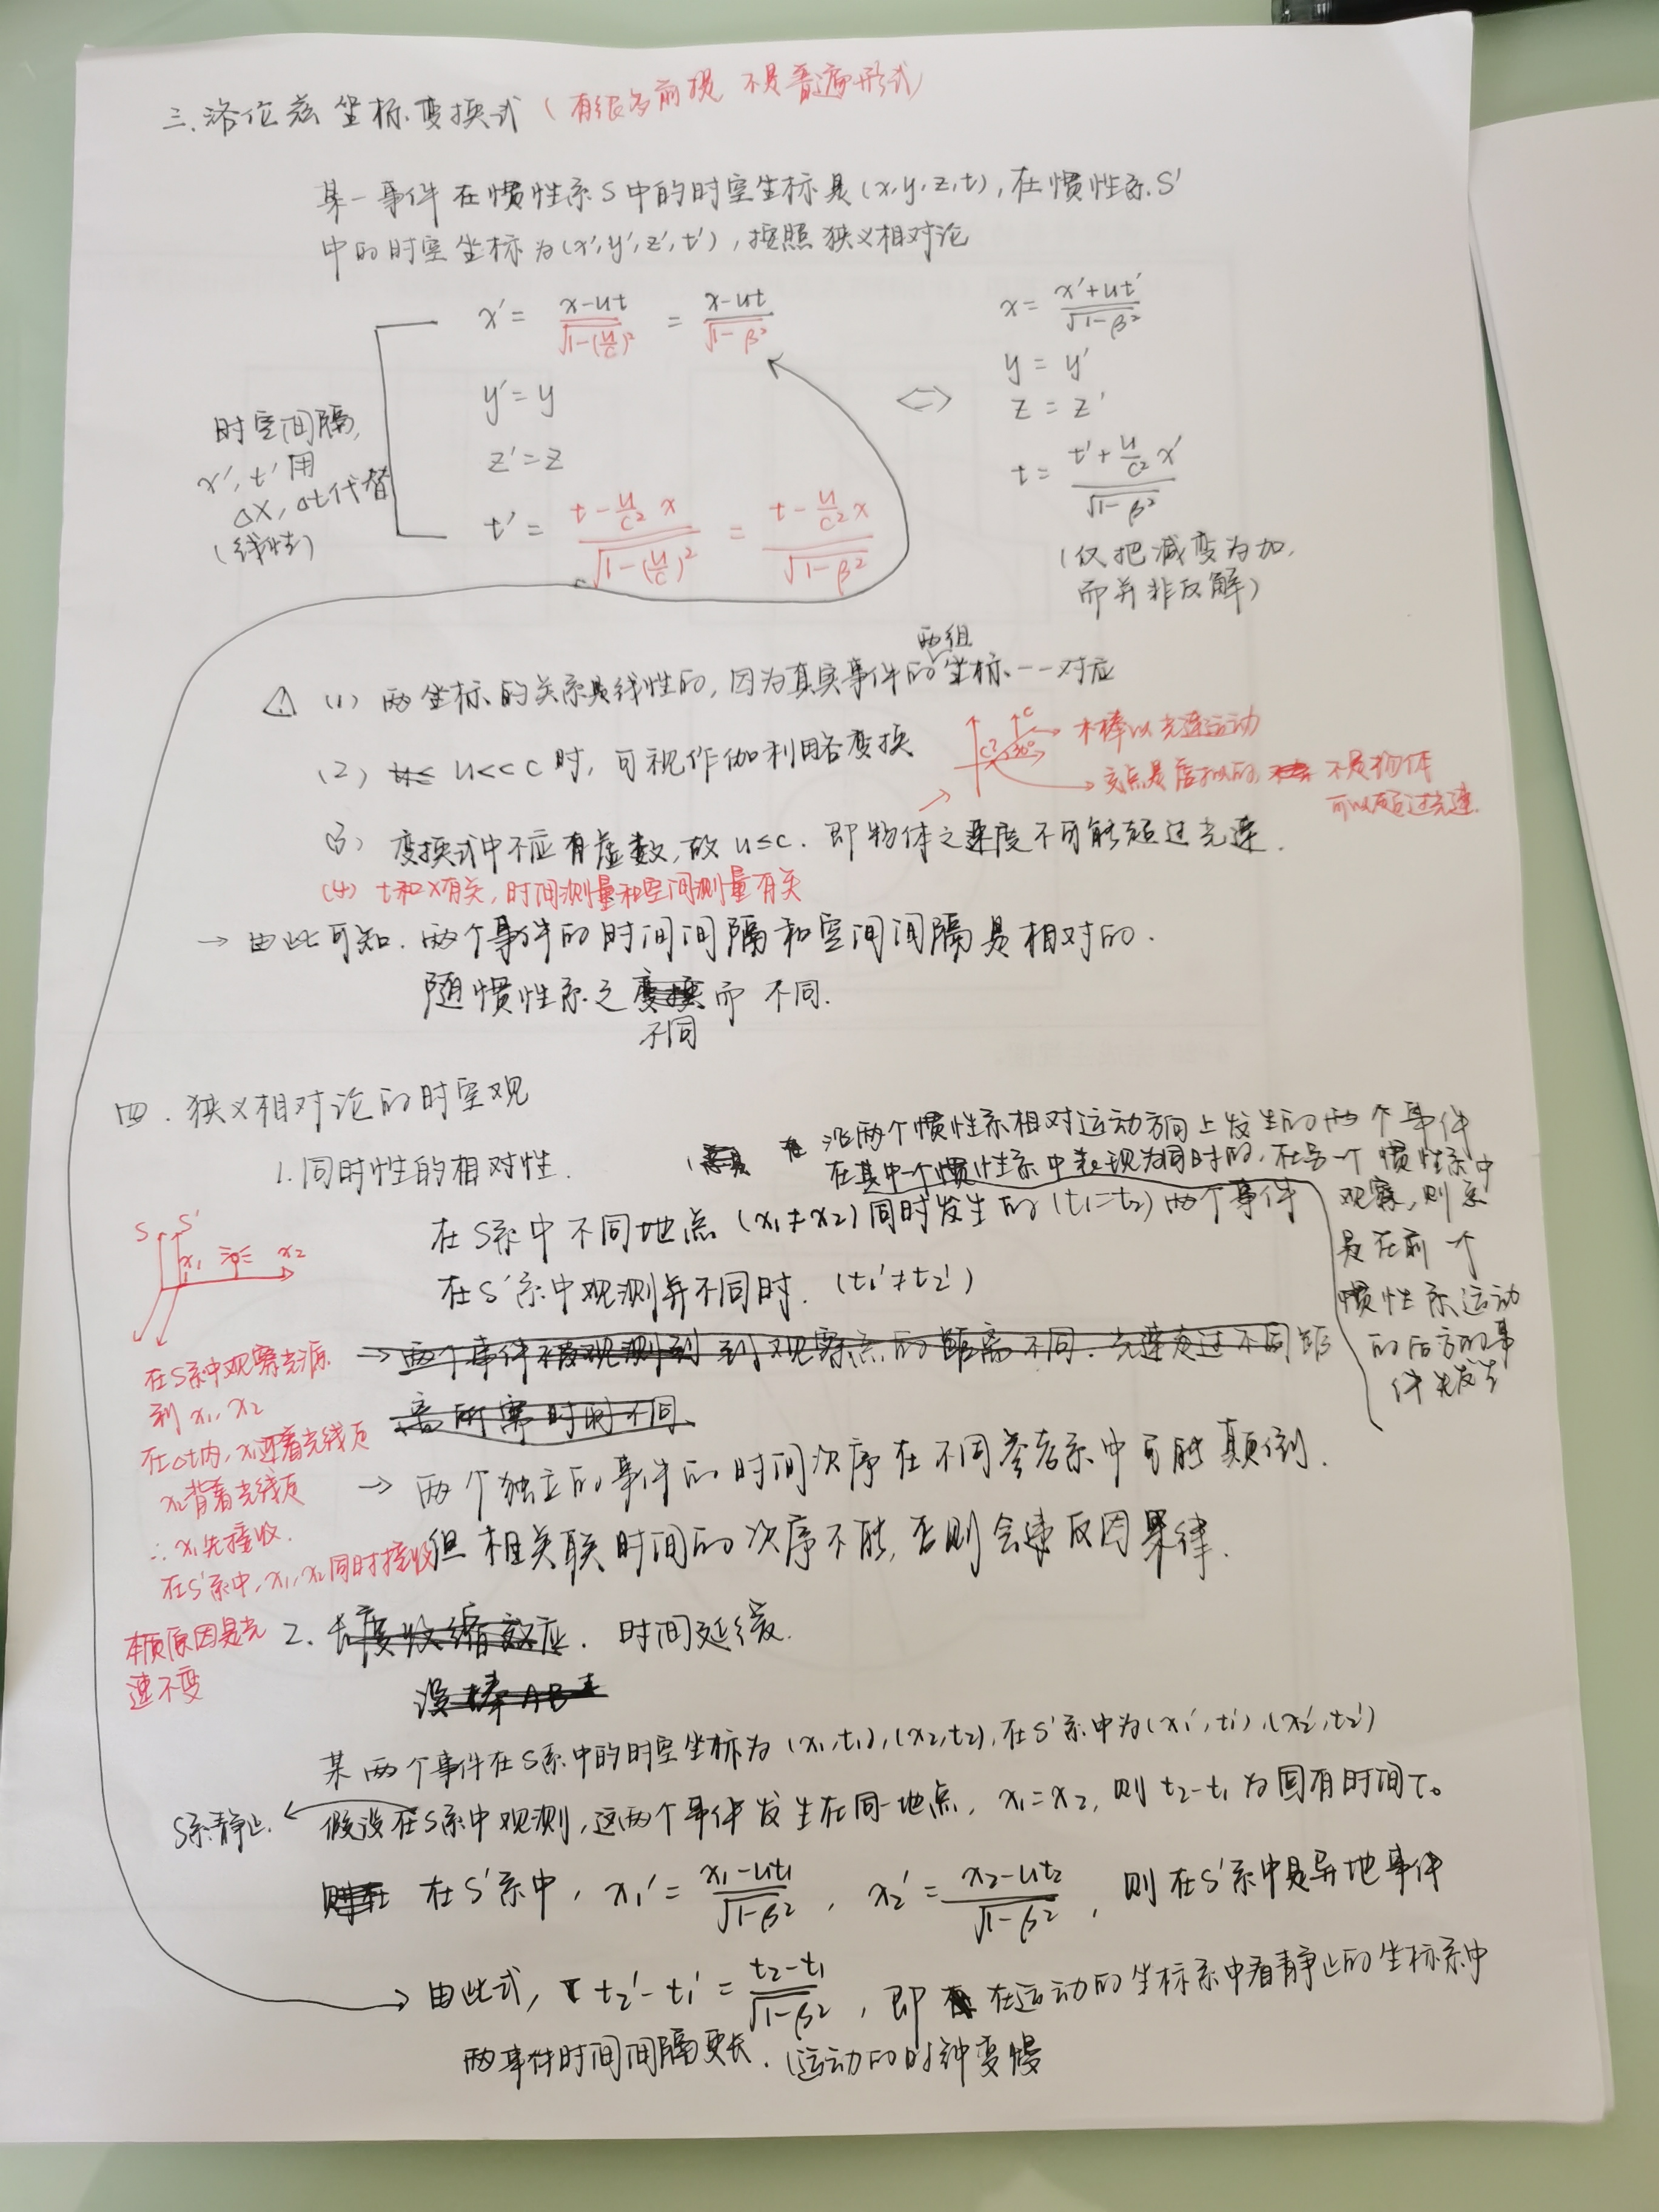 三、洛伦兹坐标变换式（有很多前提 不是普遍形式）
某一事件在惯性系S中的时空坐标是(x,y,z,t)，在惯性系S′
中的时空坐标为(x′,y′,z′,t′)，按照狭义相对论
x′= (x-ut)/√(1-(u/c)²) = (x-ut)/√(1-β²)
y′=y
z′=z
t′= (t-(u/c²)x)/√(1-(u/c)²) = (t-(u/c²)x)/√(1-β²)
时空间隔,
x′, t′用
Δx, Δt代替
(线性)
<=>
x= (x′+ut′)/√(1-β²)
y = y′
z = z′
t= (t′+(u/c²)x′)/√(1-β²)
(仅把减变为加,
而并非反解)
两组
(1) 两坐标的关系是线性的, 因为真实事件的坐标一一对应
(2) u<<c时, 可视作伽利略变换
c? c 30°
→木棒以光速运动
→交点是虚拟的, 不是物体
可以超过光速.
(3) 变换式中不应有虚数, 故u≤c. 即物体之速度不可能超过光速.
(4) t和x有关, 时间测量和空间测量有关
→ 由此可知. 两个事件的时间间隔和空间间隔是相对的.
随惯性系之变换而不同.
不同
四. 狭义相对论的时空观
1. 同时性的相对性.
沿两个惯性系相对运动方向上发生的两个事件
在其中一个惯性系中表现为同时的, 在另一个惯性系中
观察, 则总
是在前一个
惯性系运动
的后方的事
件先发生
在S系中不同地点 (x₁≠x₂) 同时发生的 (t₁=t₂) 两个事件
在S′系中观测并不同时. (t₁′≠t₂′)
S S′
x₁ x₂
在S系中观察光源
到x₁, x₂
在Δt内, x₁迎着光线页
x₂背着光线页
∴x₁先接收.
在S′系中, x₁, x₂同时接收
本质原因是光
速不变
→ 两个事件不被观测到 到观察点的距离不同. 光速走过不同距
离所需时间不同.
→ 两个独立的事件的时间次序在不同参考系中可能颠倒.
但相关联时间的次序不能, 否则会违反因果律.
2. 长度收缩效应. 时间延缓.
设棒AB
某两个事件在S系中的时空坐标为(x₁,t₁),(x₂,t₂), 在S′系中为(x₁′,t₁′),(x₂′,t₂′)
S系静止. ← 假设在S系中观测, 这两个事件发生在同一地点, x₁=x₂, 则 t₂-t₁ 为固有时间τ₀
则在 在S′系中, x₁′= (x₁-ut₁)/√(1-β²), x₂′= (x₂-ut₂)/√(1-β²), 则在S′系中是异地事件
→ 由此式, t₂′-t₁′= (t₂-t₁)/√(1-β²), 即 在运动的坐标系中看静止的坐标系中
两事件时间间隔更长. (运动的时钟变慢